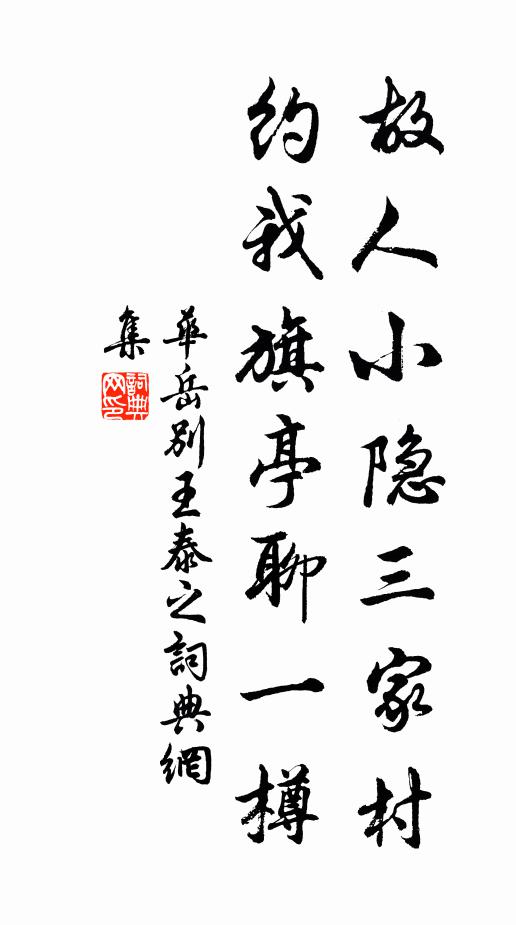 故人小隐三家村
约我旗亭聊一樽
華岳别王泰之詞典網
集
詞典网印